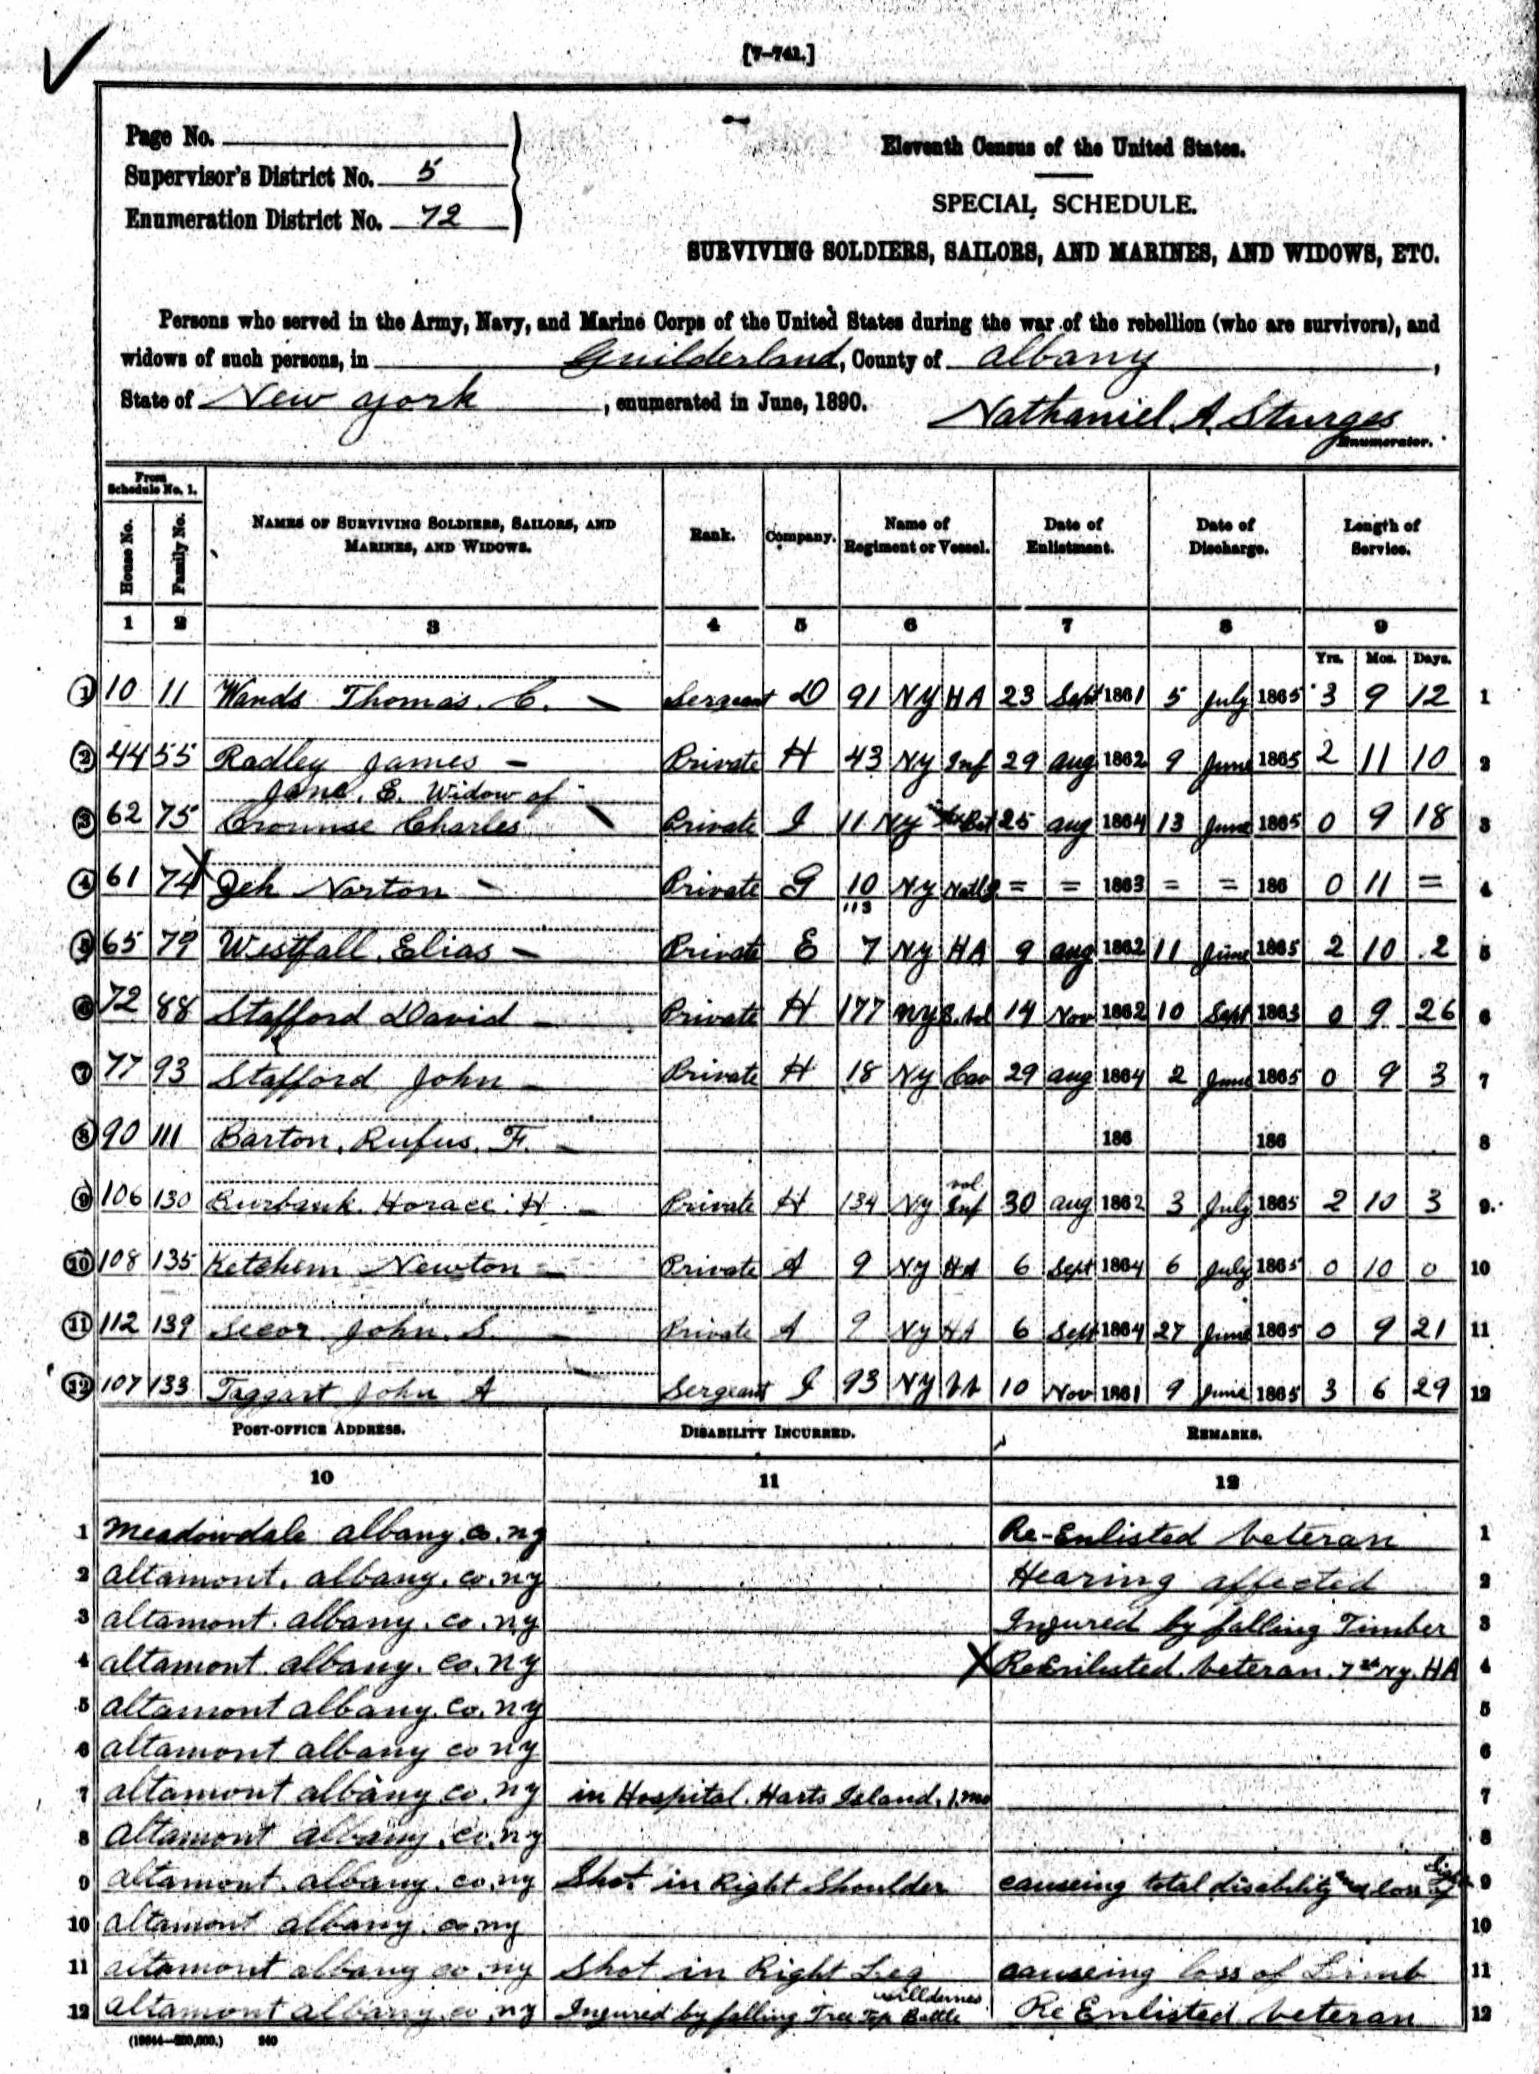 [7-741.]
Page No.
Supervisor's District No. 5
Enumeration District No. 72
Eleventh Census of the United States.
SPECIAL SCHEDULE.
SURVIVING SOLDIERS, SAILORS, AND MARINES, AND WIDOWS, ETC.
Persons who served in the Army, Navy, and Marine Corps of the United States during the war of the rebellion (who are survivors), and
widows of such persons, in Guilderland, County of Albany,
State of New York, enumerated in June, 1890. Nathaniel A. Sturges
Enumerator.
From Schedule No. 1.
House No. Family No. NAMES OF SURVIVING SOLDIERS, SAILORS, AND MARINES, AND WIDOWS. Rank. Company. Name of Regiment or Vessel. Date of Enlistment. Date of Discharge. Length of Service.
1 2 3 4 5 6 7 8 9
Yrs. Mos. Days.
1 10 11 Wands Thomas. C. Sergeant D 91 NY HA 23 Sept 1861 5 July 1865 3 9 12 1
2 44 55 Radley James Private H 43 NY Inf 29 aug 1862 9 June 1865 2 11 10 2
Jane. E. Widow of
3 62 75 Crounse Charles Private I 11 NY Bat 25 aug 1864 13 June 1865 0 9 18 3
4 61 74 Jeh Norton Private G 10 NY = = 1863 = = 186 0 11 = 4
113
5 65 79 Westfall. Elias Private E 7 NY HA 9 aug 1862 11 June 1865 2 10 2 5
6 72 88 Stafford David Private H 177 NY 14 Nov 1862 10 Sept 1863 0 9 26 6
7 77 93 Stafford John Private H 18 NY Cav 29 aug 1864 2 June 1865 0 9 3 7
8 90 111 Barton, Rufus. F. 186 186 8
9 106 130 Burbank. Horace. H Private H 134 NY vol Inf 30 aug 1862 3 July 1865 2 10 3 9
10 108 135 Ketchem Newton Private A 9 NY HA 6 Sept 1864 6 July 1865 0 10 0 10
11 112 139 Secor John. S. Private A 9 NY HA 6 Sept 1864 27 June 1865 0 9 21 11
12 107 133 Taggart John A Sergeant I 93 NY 10 Nov 1861 9 June 1865 3 6 29 12
POST-OFFICE ADDRESS. DISABILITY INCURRED. REMARKS.
10 11 12
1 Meadowdale albany. co. ny Re-Enlisted veteran 1
2 altamont. albany. co. ny Hearing affected 2
3 altamont. albany. co. ny Injured by falling Timber 3
4 altamont. albany. co. ny ReEnlisted. veteran. 7th Ny. HA 4
5 altamont albany. co. ny 5
6 altamont albany co ny 6
7 altamont albany co. ny in Hospital. Harts Island. 1. mo 7
8 altamont albany. co. ny 8
9 altamont. albany. co. ny Shot in Right Shoulder causeing total disability and loss of 9
10 altamont albany. co. ny 10
11 altamont albany co. ny Shot in Right Leg causeing loss of Limb 11
12 altamont albany. co. ny Injured by falling Tree Top Battle willderness Re Enlisted veteran 12